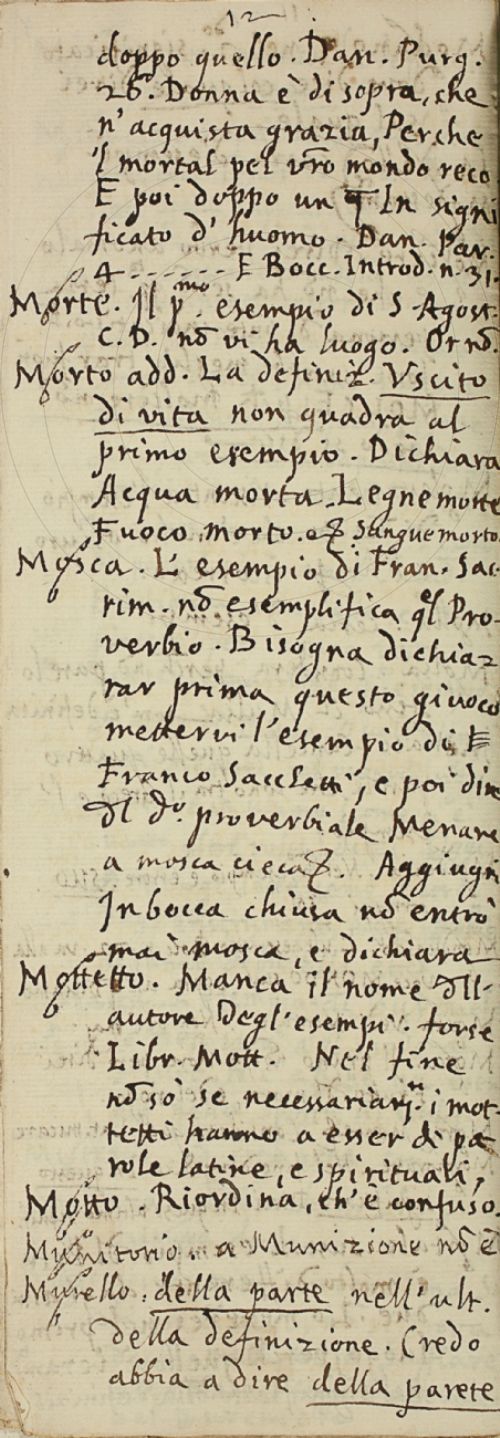 12
doppo quello. Dan. Purg.
26. Donna è di sopra, che
n'acquista grazia, Perche
'l mortal pel vr̃o mondo reco
E poi doppo un ¶ In signi
ficato d'huomo. Dan. Par.
4 - - - - - - - E Bocc. Introd. n. 31.
Morte. Il p.mo esempio di S. Agost.
C. D. nõ vi ha luogo. Or nõ.
Morto add. La definiz. Vscito
di vita non quadra al
primo esempio. Dichiara
Acqua morta. Legne morte
Fuoco morto. e Sangue morto.
Mosca. L'esempio di Fran. Sac.
rim. nõ esemplifica q̃l Pro-
verbio. Bisogna dichiaz
rar prima questo giuoco
mettervi l'esempio di
Franco Sacchetti, e poi dire
dl d.o proverbiale Menare
a mosca cieca. Aggiugni
In bocca chiusa nõ entrò
mai mosca, e dichiara
Mottetto. Manca il nome dll'
autore degl'esempi. forse
Libr. Mott. Nel fine
nõ sò se necessariam. i mot-
tetti hanno a esser di pa
role latine, e spirituali,
Motto. Riordina, ch'è confuso.
Munitorio. a Munizione nõ è
Murello. della parte nell'ult.
della definizione. Credo
abbia a dire della parete